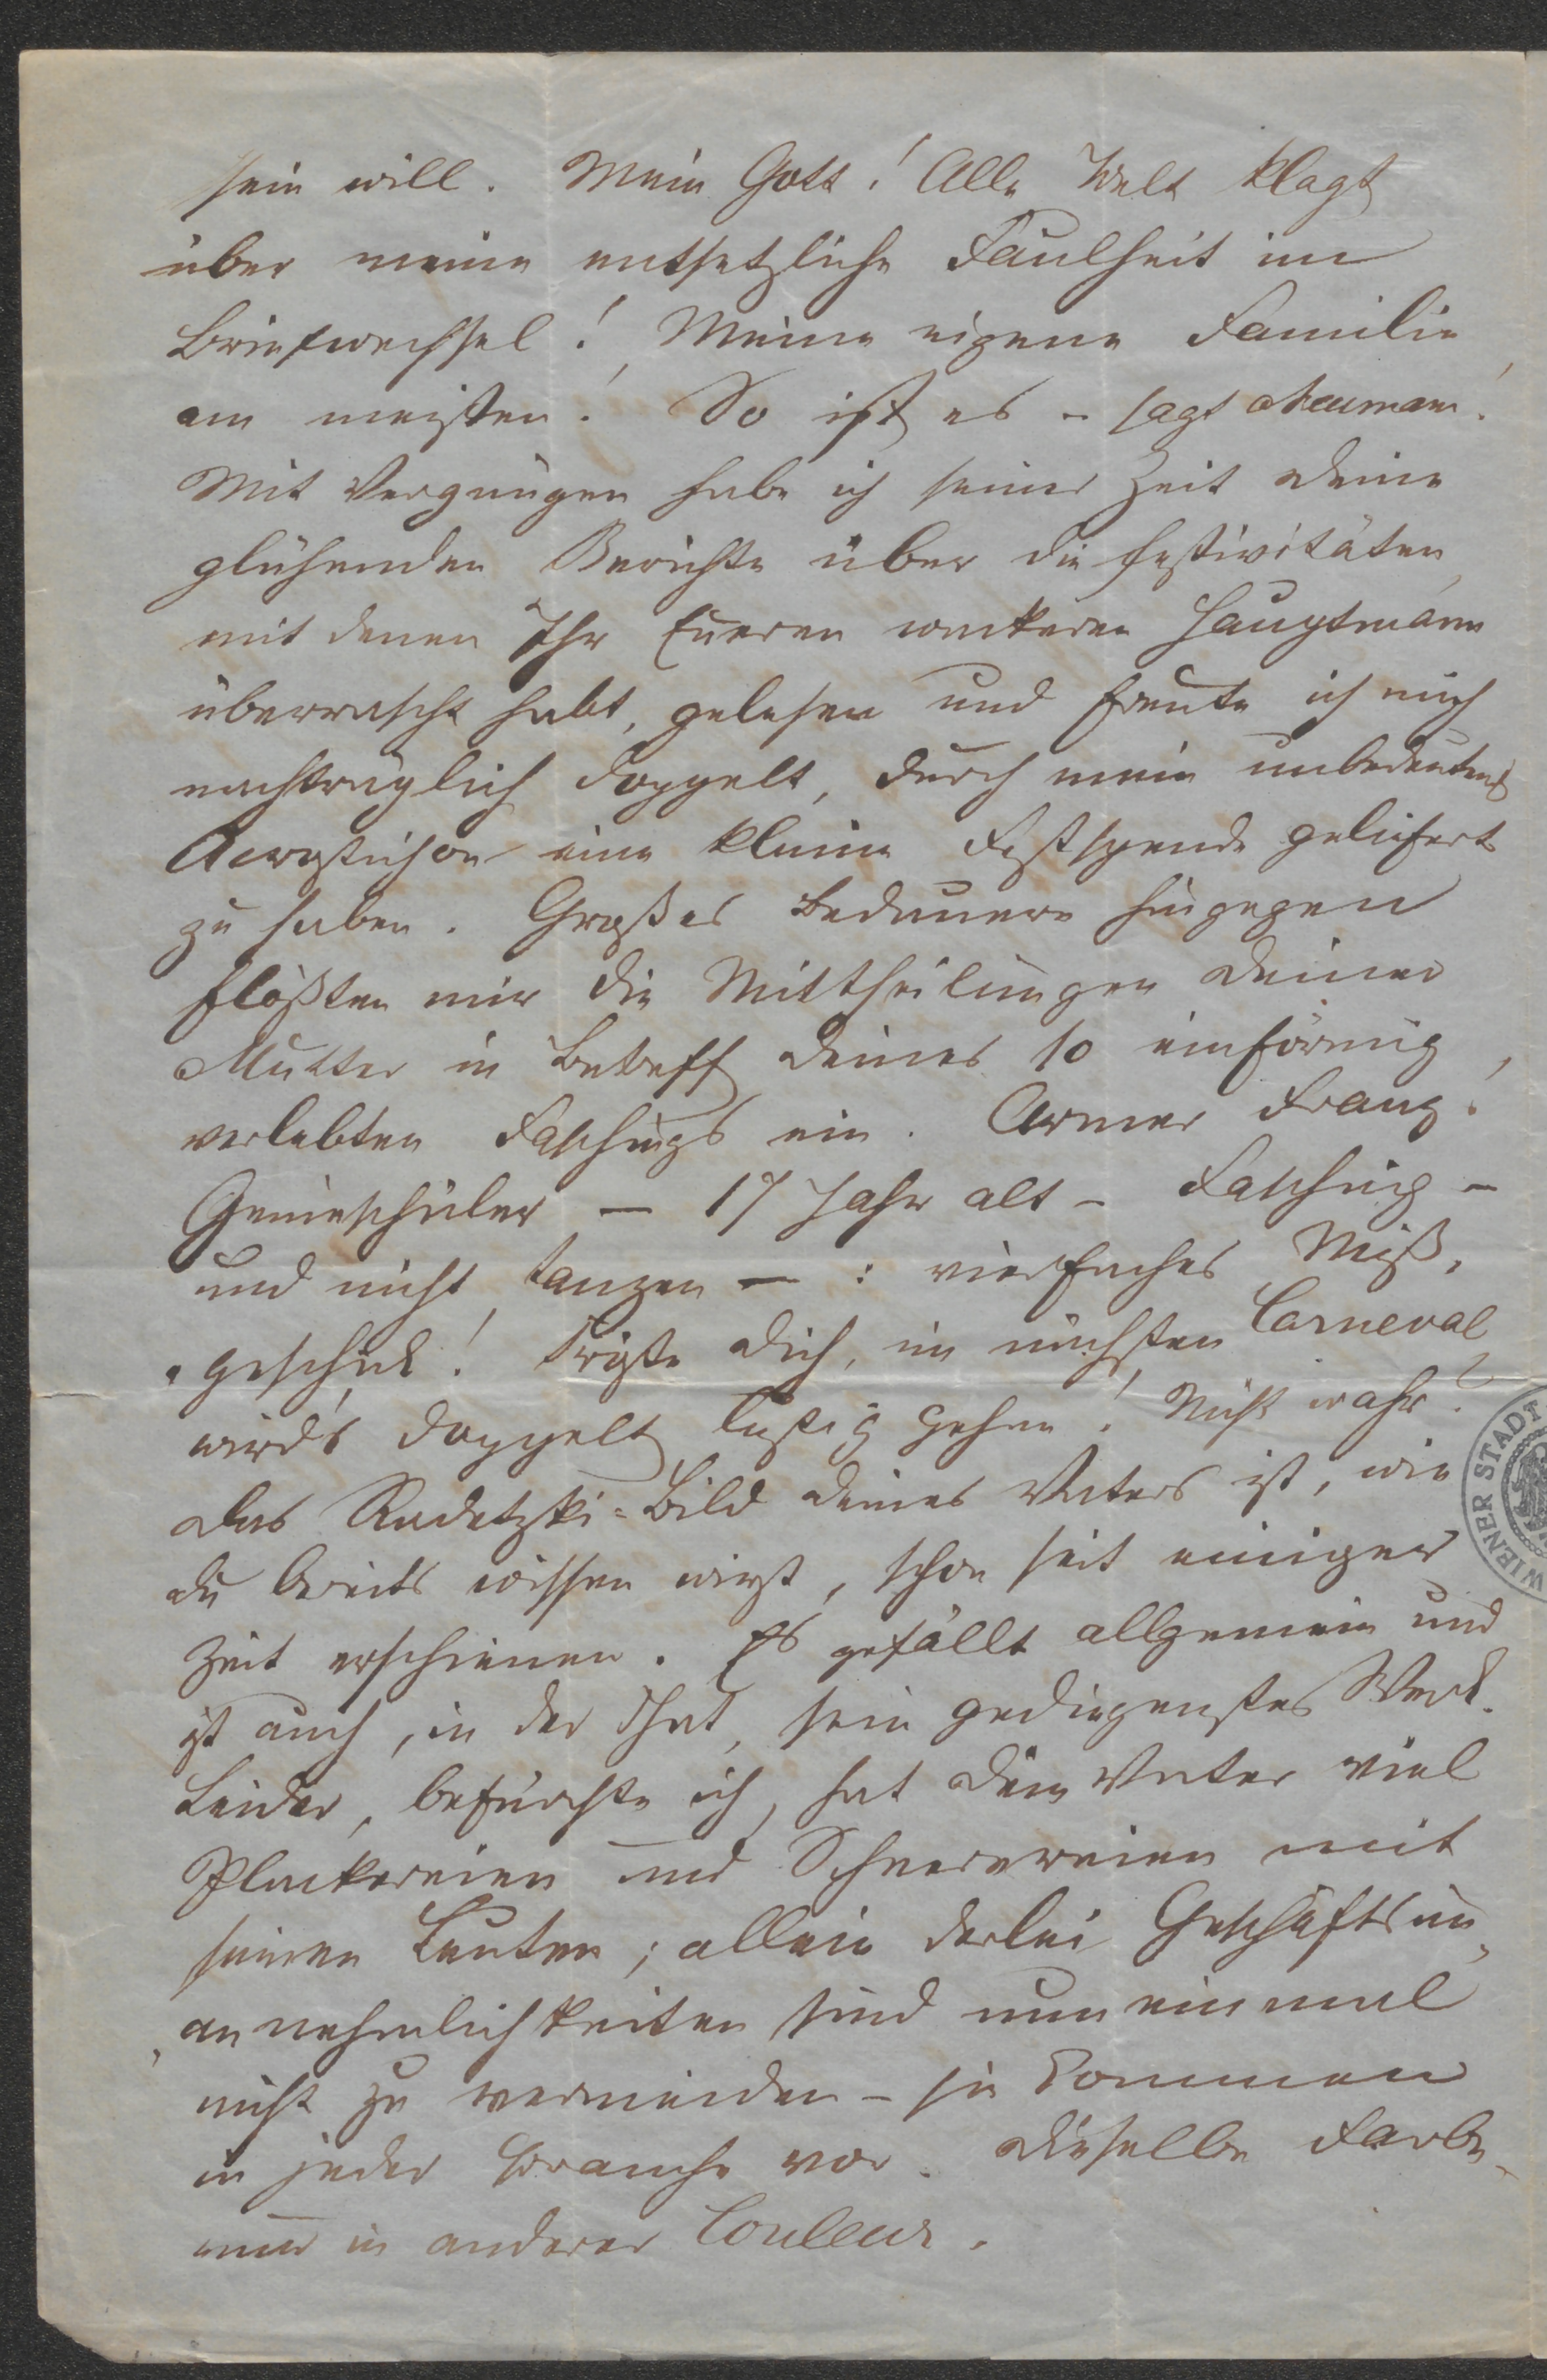 sein will. Mein Gott! Alle Welt klagt
über meine entsetzliche Faulheit im
Briefwechsel! Meine eigene Familie
am meisten! So ist es – sagt Neumann!
Mit Vergnügen habe ich seiner Zeit Deine
glühenden Berichte über die Festivitäten,
mit denen Ihr Eueren wackeren Hauptmann
überrascht habt, gelesen und freute ich mich
nachträglich doppelt, durch mein unbedeutend
Acrostichon eine kleine Festspende geliefert
zu haben. Großes Bedauern hingegen
flößten mir die Mittheilungen Deiner
Mutter in Betreff Deines so einförmig
verlebten Faschings ein. Armer Franz!
Genieschüler – 17 Jahr alt – Fasching –
und nicht tanzen – : vierfaches Miß„
„geschick! Tröste Dich, im nächsten Carneval
wird's doppelt lustig gehen! Nicht wahr?
Das Radetzki=Bild Deines Vaters ist, wie
Du bereits wissen wirst, schon seit einiger
Zeit erschienen. Es gefällt allgemein und
ist auch, in der That, sein gediegenstes Werk.
Leider, befürchte ich, hat Dein Vater viel
Plackereien und Scherereien mit
seinen Leuten; allein derlei Geschäftsun„
„annehmlichkeiten sind nun einmal
nicht zu vermeiden – sie kommen
in jeder Branche vor. Dieselbe Farbe,
nur in anderer Couleur.
WIENER STADT